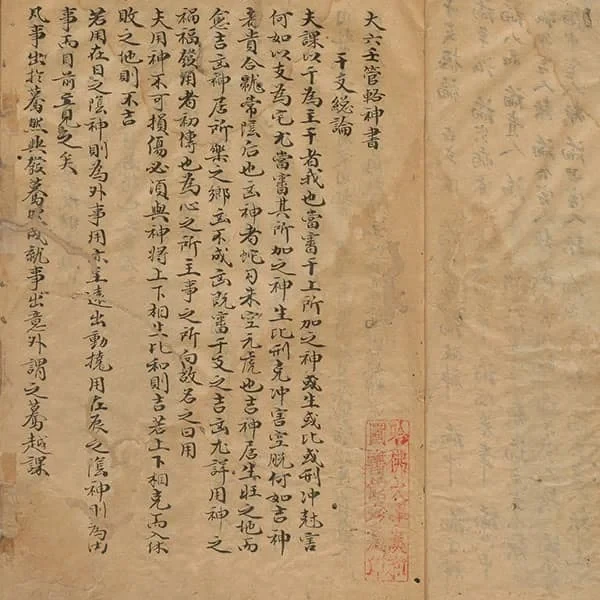 大六壬管輅神書
干支総論
夫課以干為主干者我也當審干上所加之神或生或比或刑冲尅害
何如以支為宅尤當審其所加之神生比刑克冲害空脱何如吉神
者貴合龍常陰后也凶神者蛇勾朱空元虎也吉神居生旺之地而
愈吉凶神居所樂之鄉立不成凶既審干支之吉凶尤詳用神之
禍福發用者初傳也為心之所主事之所向故名之曰用
夫用神不可損傷必須與神將上下相生比和則吉若上下相克而入休
敗之地則不吉
若用在日之陰神則為外事用亦主遠出動撓用在辰之陰神則為内
事而目前立見之矣
凡事出於驀然與發驀然成就事出意外謂之驀越課
哈佛大學漢和
圖書館珍藏印